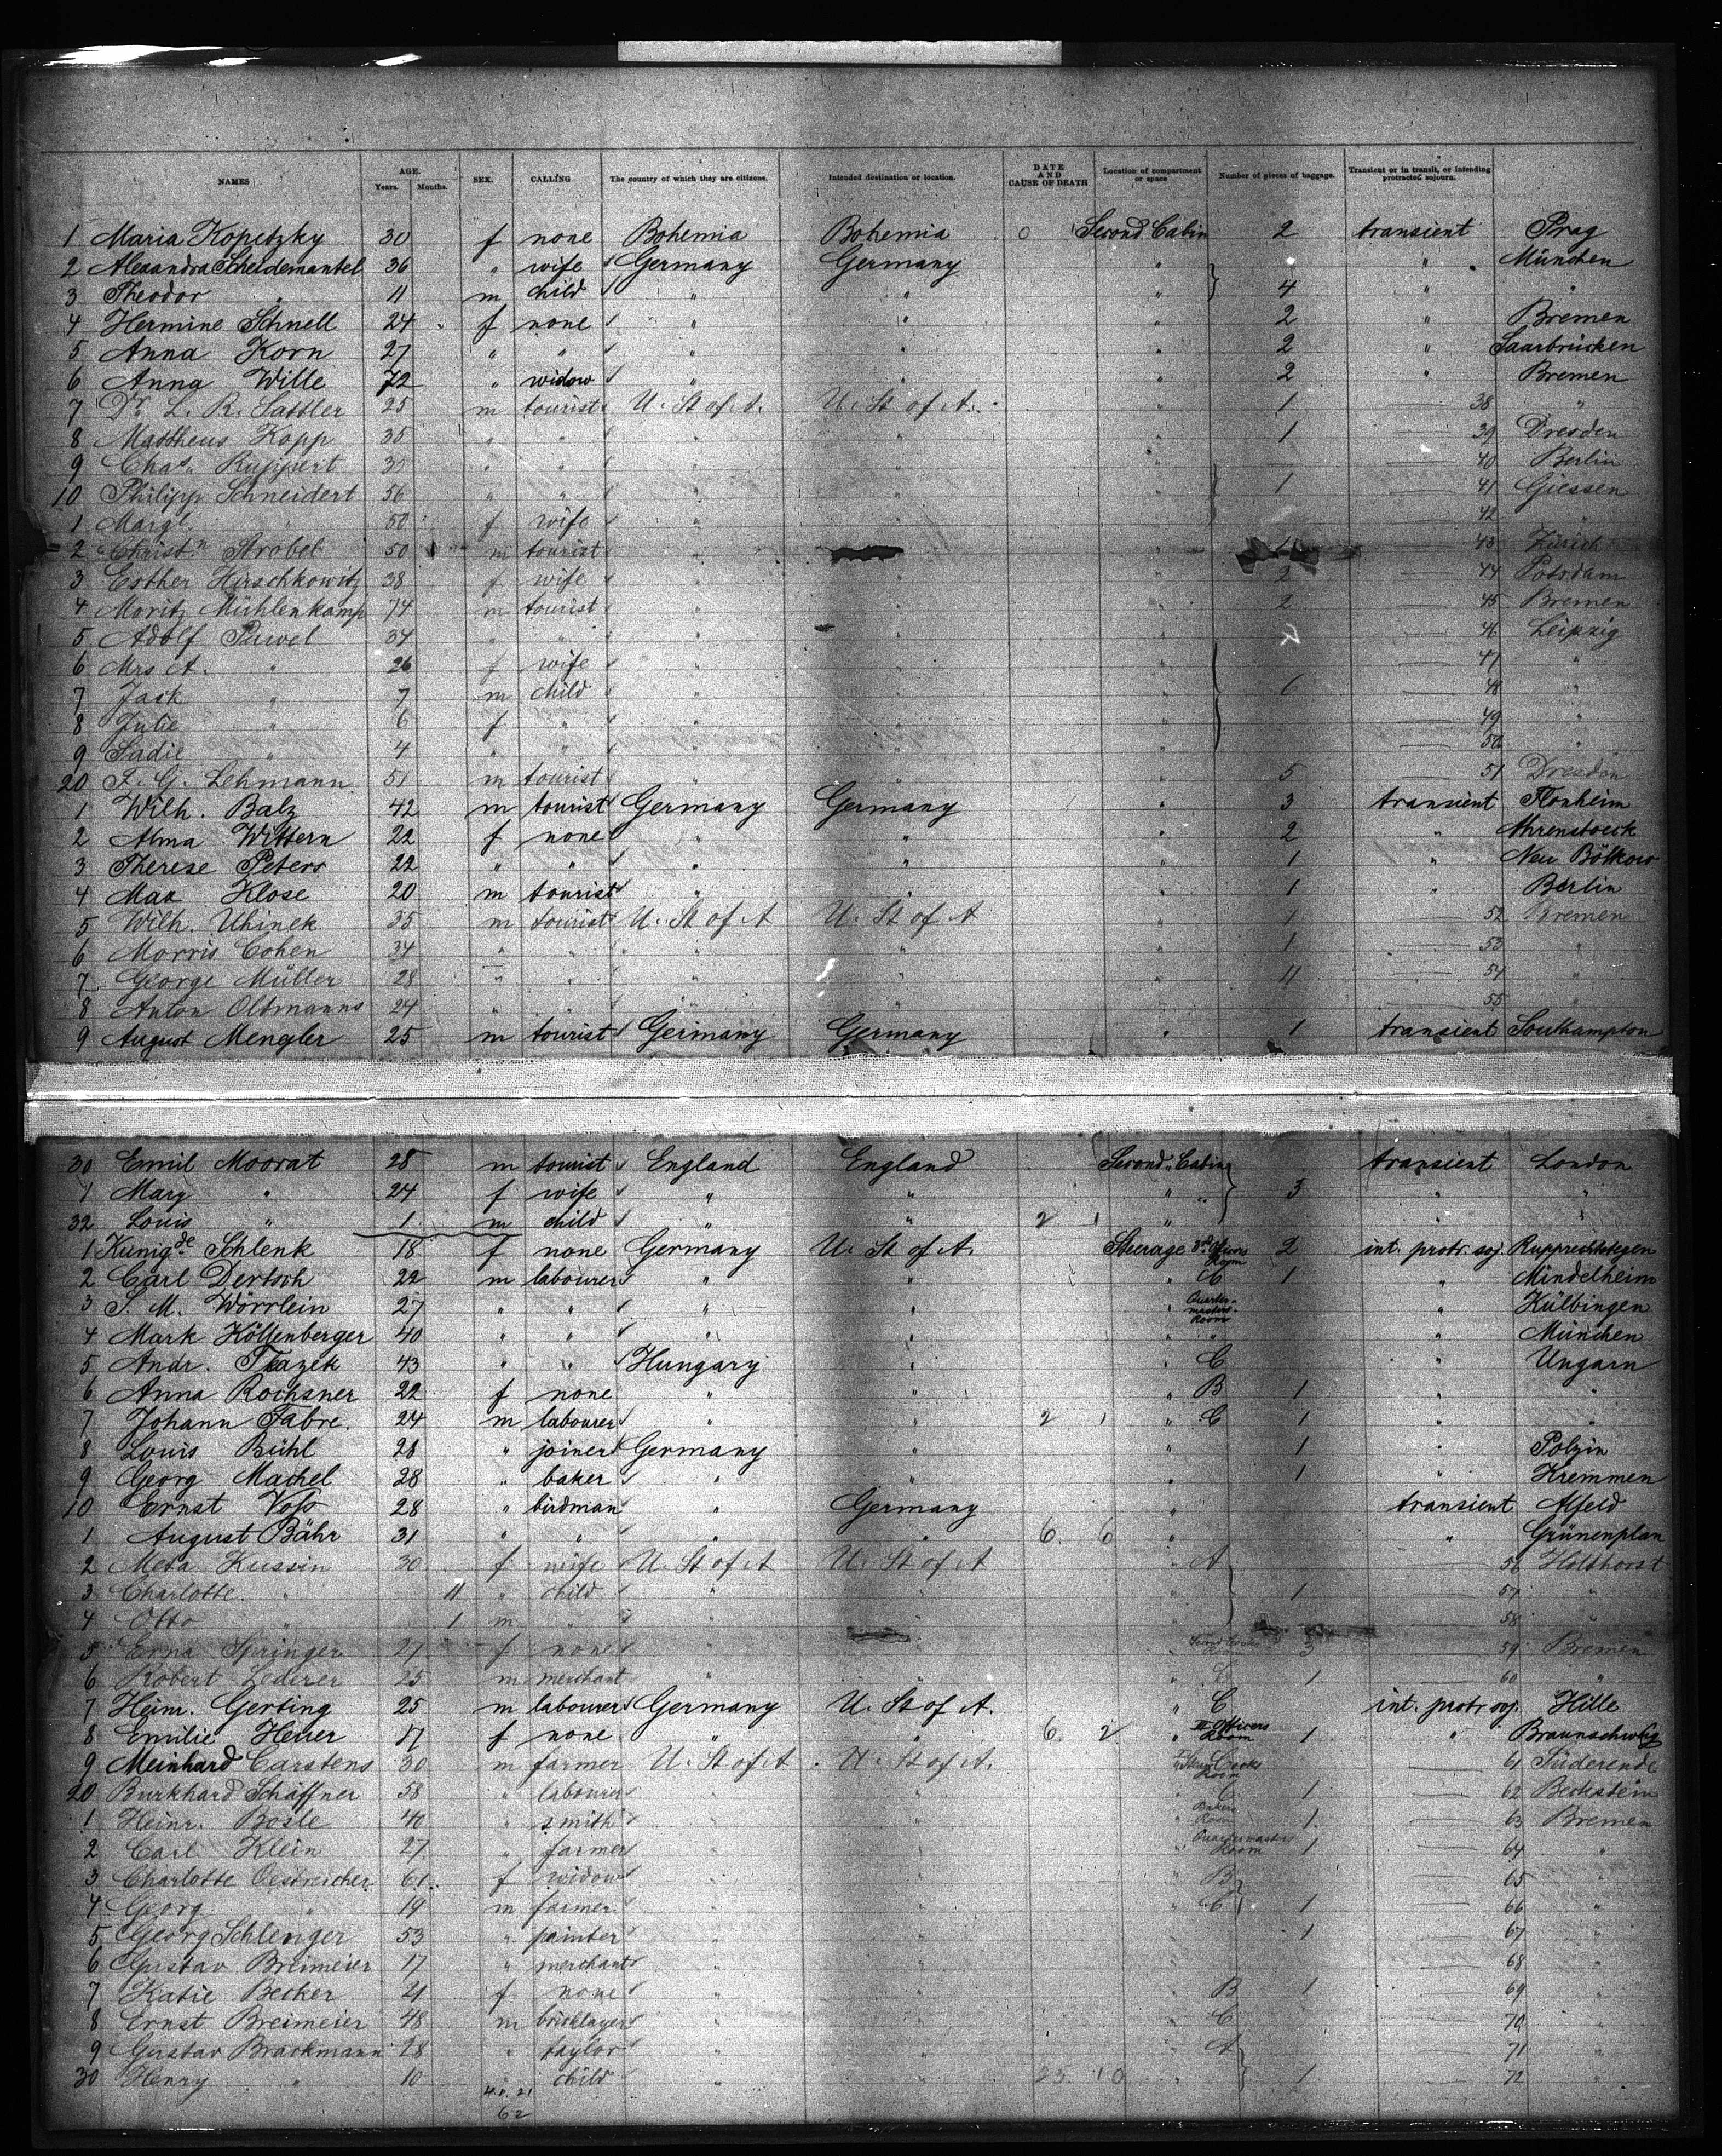 NAMES AGE. Years. Months. SEX. CALLING The country of which they are citizens. Intended destination or location. DATE AND CAUSE OF DEATH Location of compartment or space Number of pieces of baggage. Transient or in transit, or intending protracted sojourn.
1 Maria Kopetzky 30 f none Bohemia Bohemia 0 Second Cabin 2 transient Prag
2 Alexandra Scheidemantel 36 " wife Germany Germany " " München
3 Theodor " 11 m child " " " 4 " "
4 Hermine Schnell 24 f none " " 2 " Bremen
5 Anna Korn 27 " " " " " 2 " Saarbrücken
6 Anna Wille 72 " widow " " " 2 " Bremen
7 Dr. L. R. Sattler 25 m tourist U. St of A. U. St of A. " 1 38 "
8 Mattheus Kopp 35 " " " " " 1 39 Dresden
9 Chas. Ruppert 35 " " " " " 40 Berlin
10 Philipp Schneidert 56 " " " " 1 41 Giessen
1 Margt. " 50 f wife " " " 42 "
2 Christn Strobel 50 m tourist " " 43 Zürich
3 Esther Hirschkowitz 38 f wife " " " 2 44 Potsdam
4 Moritz Mühlenkamp 74 m tourist " " " 2 45 Bremen
5 Adolf Pawel 34 " " " " " 46 Leipzig
6 Mrs A. " 26 f wife " " " 47 "
7 Jack " 7 m child " " " 6 48 "
8 Julie " 6 f " " " " 49 "
9 Sadie " 4 " " " " " 50 "
20 F. G. Lehmann 51 m tourist " " " 5 51 Dresden
1 Wilh. Balz 42 m tourist Germany Germany " 3 transient Flonheim
2 Alma Wittern 22 f none " " " 2 " Ahrensboeck
3 Therese Peters 22 " " " " " 1 " Neu Bölkow
4 Max Klose 20 m tourist " " " 1 " Berlin
5 Wilh. Uhinek 35 m tourist U. St of A U. St of A " 1 52 Bremen
6 Morris Cohen 34 " " " " " 1 53 "
7 George Müller 28 " " " " " 4 54 "
8 Anton Oltmanns 24 " " " " 55 "
9 August Mengler 25 m tourist Germany Germany " 1 transient Southampton
30 Emil Moorat 28 m tourist England England Second Cabin transient London
1 Mary " 24 f wife " " " " 3 " "
32 Louis " 1 m child " " 2 1 " " "
1 Kunigde Schlenk 18 f none Germany U. St of A. Steerage 3rd Room 2 int. protr. soj. Rupprechtstegen
2 Carl Dertsch 22 m labourer " " " C 1 " Mindelheim
3 S. M. Wörrlein 27 " " " " " Quartermasters Room " Külbingen
4 Mark Köllenberger 40 " " " " " " " München
5 Andr. Tkazek 43 " " Hungary " " C " Ungarn
6 Anna Rochsner 22 f none " " " B 1 " "
7 Johann Fabre. 24 m labourer " " 2 1 " C 1 " "
8 Louis Bühl 28 " joiner Germany " " 1 " Polzin
9 Georg Machel 28 " baker " " " 1 " Kremmen
10 Ernst Voß 28 " birdman " Germany " transient Alfeld
1 August Bähr 31 " " " " 6 6 " " Grünenplan
2 Meta Kussin 30 f wife U. St of A U. St of A " A 56 Holthorst
3 Charlotte " 11 " child " " " 1 57 "
4 Otto " 1 m " " 58 "
5 Erna Springer 21 f none " " 3 59 Bremen
6 Robert Lederer 25 m merchant " " " C 1 60 "
7 Heinr. Gerting 25 m labourer Germany U. St of A. " C int. protr. soj. Hille
8 Emilie Heuer 17 f none " " 6 2 " II Officers Room 1 " Braunschweig
9 Meinhard Carstens 30 m farmer U. St of A U. St of A. " Cooks Room 61 Süderende
20 Burkhard Schäffner 58 " labourer " " " C 1 62 Beckstein
1 Heinr. Bosle 40 " smith " " " Bakers Room 1 63 Bremen
2 Carl Klein 27 " farmer " " " Quartermasters Room 1 64 "
3 Charlotte Oestreicher 61 f widow " " " B 65 "
4 Georg " 19 m farmer " " " C 1 66 "
5 Georg Schlenger 53 " painter " " 1 67 "
6 Gustav Breimeier 17 " merchant " " 68 "
7 Katie Becker 21 f none " " B 1 69 "
8 Ernst Breimeier 48 m bricklayer " " C 70 "
9 Gustav Brackmann 28 " taylor " " " A 71 "
30 Henry " 10 " child " " 25 10 " 1 72 "
62